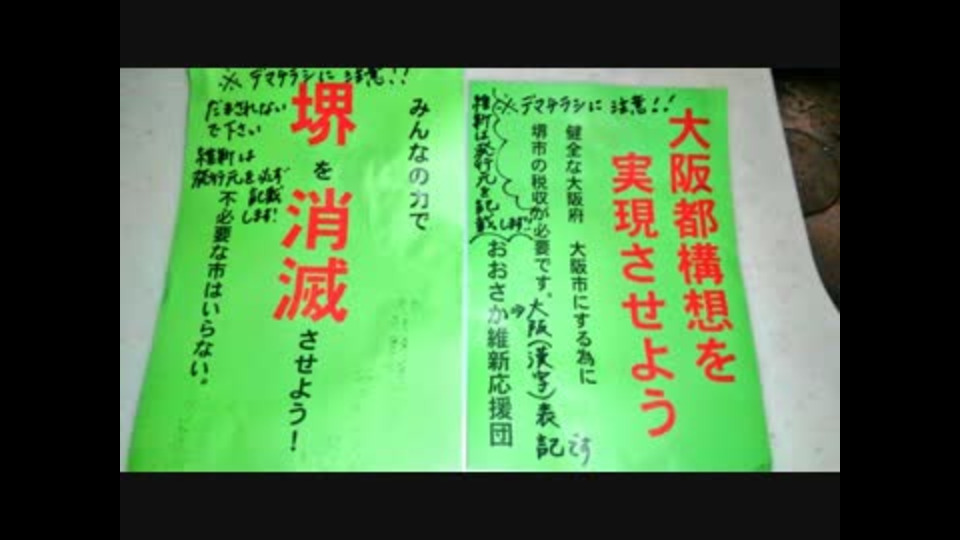 ※デマチラシに注意!!
大阪都構想を
実現させよう
健全な大阪府 大阪市にする為に
堺市の税収が必要です。
おおさか維新応援団
⇒大阪(漢字)表記です
維新は発行元を記載します!!
※デマチラシに注意!!
みんなの力で
堺を消滅させよう!
不必要な市はいらない。
だまされないで下さい
維新は
発行元を必ず
記載
します!